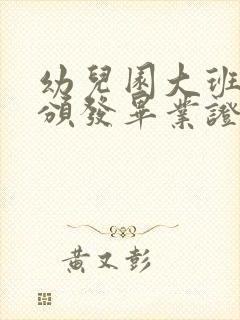 幼兒園大班
頒發畢業證
黃又彭